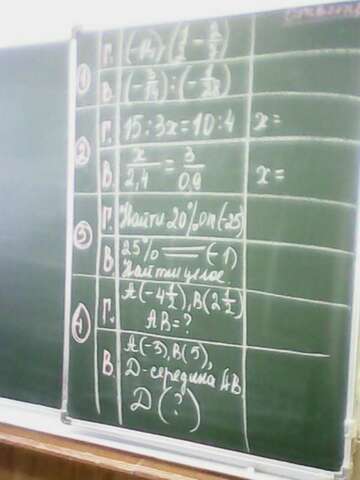 1
Г.
В.
2
Г. 15 : 3x = 10 : 4 x =
В. x/2,4 = 3/0,9 x =
3
Г. Найти 20% от (-25)
В. 25% = (-1)
Найти целое.
4
Г. A(-4 1/2), B(2 1/2)
AB = ?
В. A(-3), B(5),
D-середина AB
D(?)